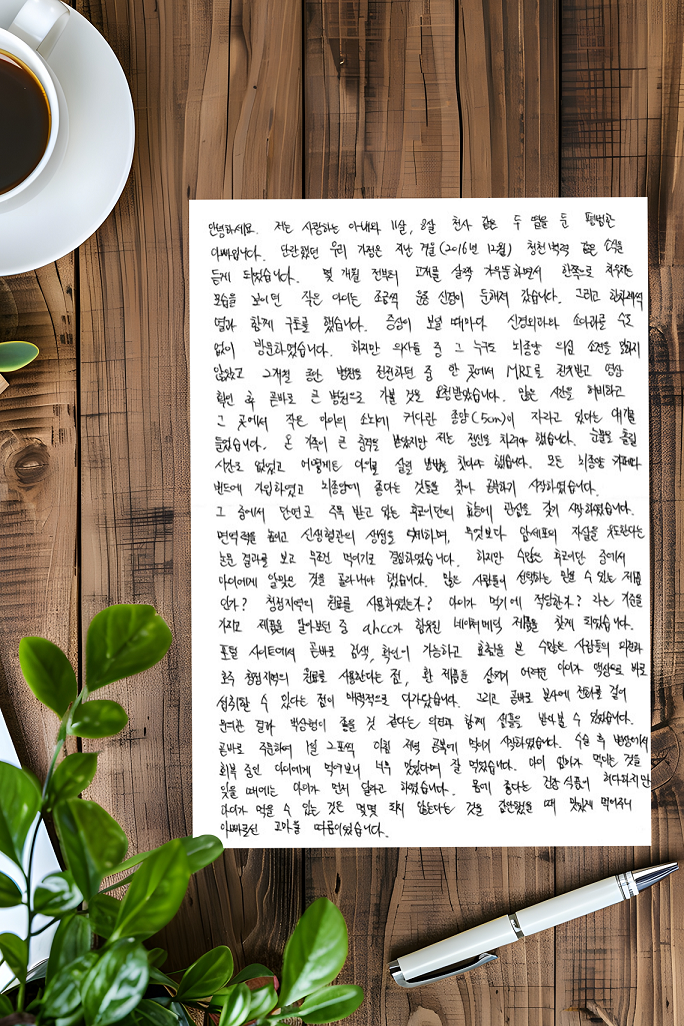 안녕하세요. 저는 사랑하는 아내와 11살, 8살 천사 같은 두 딸을 둔 평범한
아빠입니다. 단란했던 우리 가정은 지난 겨울(2016년 12월) 청천벽력 같은 소식을
듣게 되었습니다. 몇 개월 전부터 고개를 살짝 갸우뚱하면서 한쪽으로 치우치는
모습을 보이던 작은 아이는 조금씩 운동 신경이 둔해져 갔습니다. 그리고 화장실에서
함께 구토를 했습니다. 증상이 보일 때마다 신경외과와 소아과를 수도
없이 방문하였습니다. 하지만 의사들 중 그 누구도 뇌종양 의심 소견을 말하지
않았고 2개월 동안 병원을 전전하던 중 한 곳에서 MRI를 권유받고 영상
확인 후 곧바로 큰 병원으로 가볼 것을 요청받았습니다. 많은 시간을 허비하고
그 곳에서 작은 아이의 소뇌에 커다란 종양(5cm)이 자라고 있다는 얘기를
들었습니다. 온 가족이 큰 충격을 받았지만 저는 정신을 차려야 했습니다. 눈물을 흘릴
시간도 없었고 어떻게든 아이를 살릴 방법을 찾아야 했습니다. 모든 뇌종양 카페와
밴드에 가입하였고 뇌종양에 좋다는 것들을 찾아 공부하기 시작하였습니다.
그 중에서 단연코 주목 받고 있는 후코이단의 효능에 관심을 갖기 시작하였습니다.
면역력을 높이고 신생혈관의 생성을 억제하며, 무엇보다 암세포의 자살을 유도한다는
논문 결과를 보고 무조건 먹이기로 결심하였습니다. 하지만 수많은 후코이단 중에서
아이에게 알맞은 것을 골라내야 했습니다. 많은 사람들이 선택하는 믿을 수 있는 제품
인가? 청정지역의 원료를 사용하였는가? 아이가 먹기에 적당한가? 라는 기준을
가지고 제품을 알아보던 중 ahcc가 함유된 네이처메딕 제품을 찾게 되었습니다.
포털 사이트에서 곧바로 검색, 확인이 가능하고 효과를 본 수많은 사람들의 의견과
호주 청정지역의 원료를 사용한다는 점, 환 제품을 삼키기 어려운 아이가 액상으로 바로
섭취할 수 있다는 점이 매력적으로 다가왔습니다. 그리고 곧바로 본사에 전화를 걸어
문의한 결과 액상형이 좋을 것 같다는 의견과 함께 샘플을 받아볼 수 있었습니다.
곧바로 주문하여 1일 2포씩 아침 저녁 공복에 먹이기 시작하였습니다. 수술 후 병상에서
회복 중인 아이에게 먹여보니 너무 맛있다며 잘 먹었습니다. 아이 엄마가 먹이는 것을
잊을 때에는 아이가 먼저 달라고 하였습니다. 몸에 좋다는 건강 식품이 허다하지만
아이가 먹을 수 있는 것은 몇몇 되지 않는다는 것을 감안했을 때 맛있게 먹어주니
아빠로선 고마울 따름이었습니다.